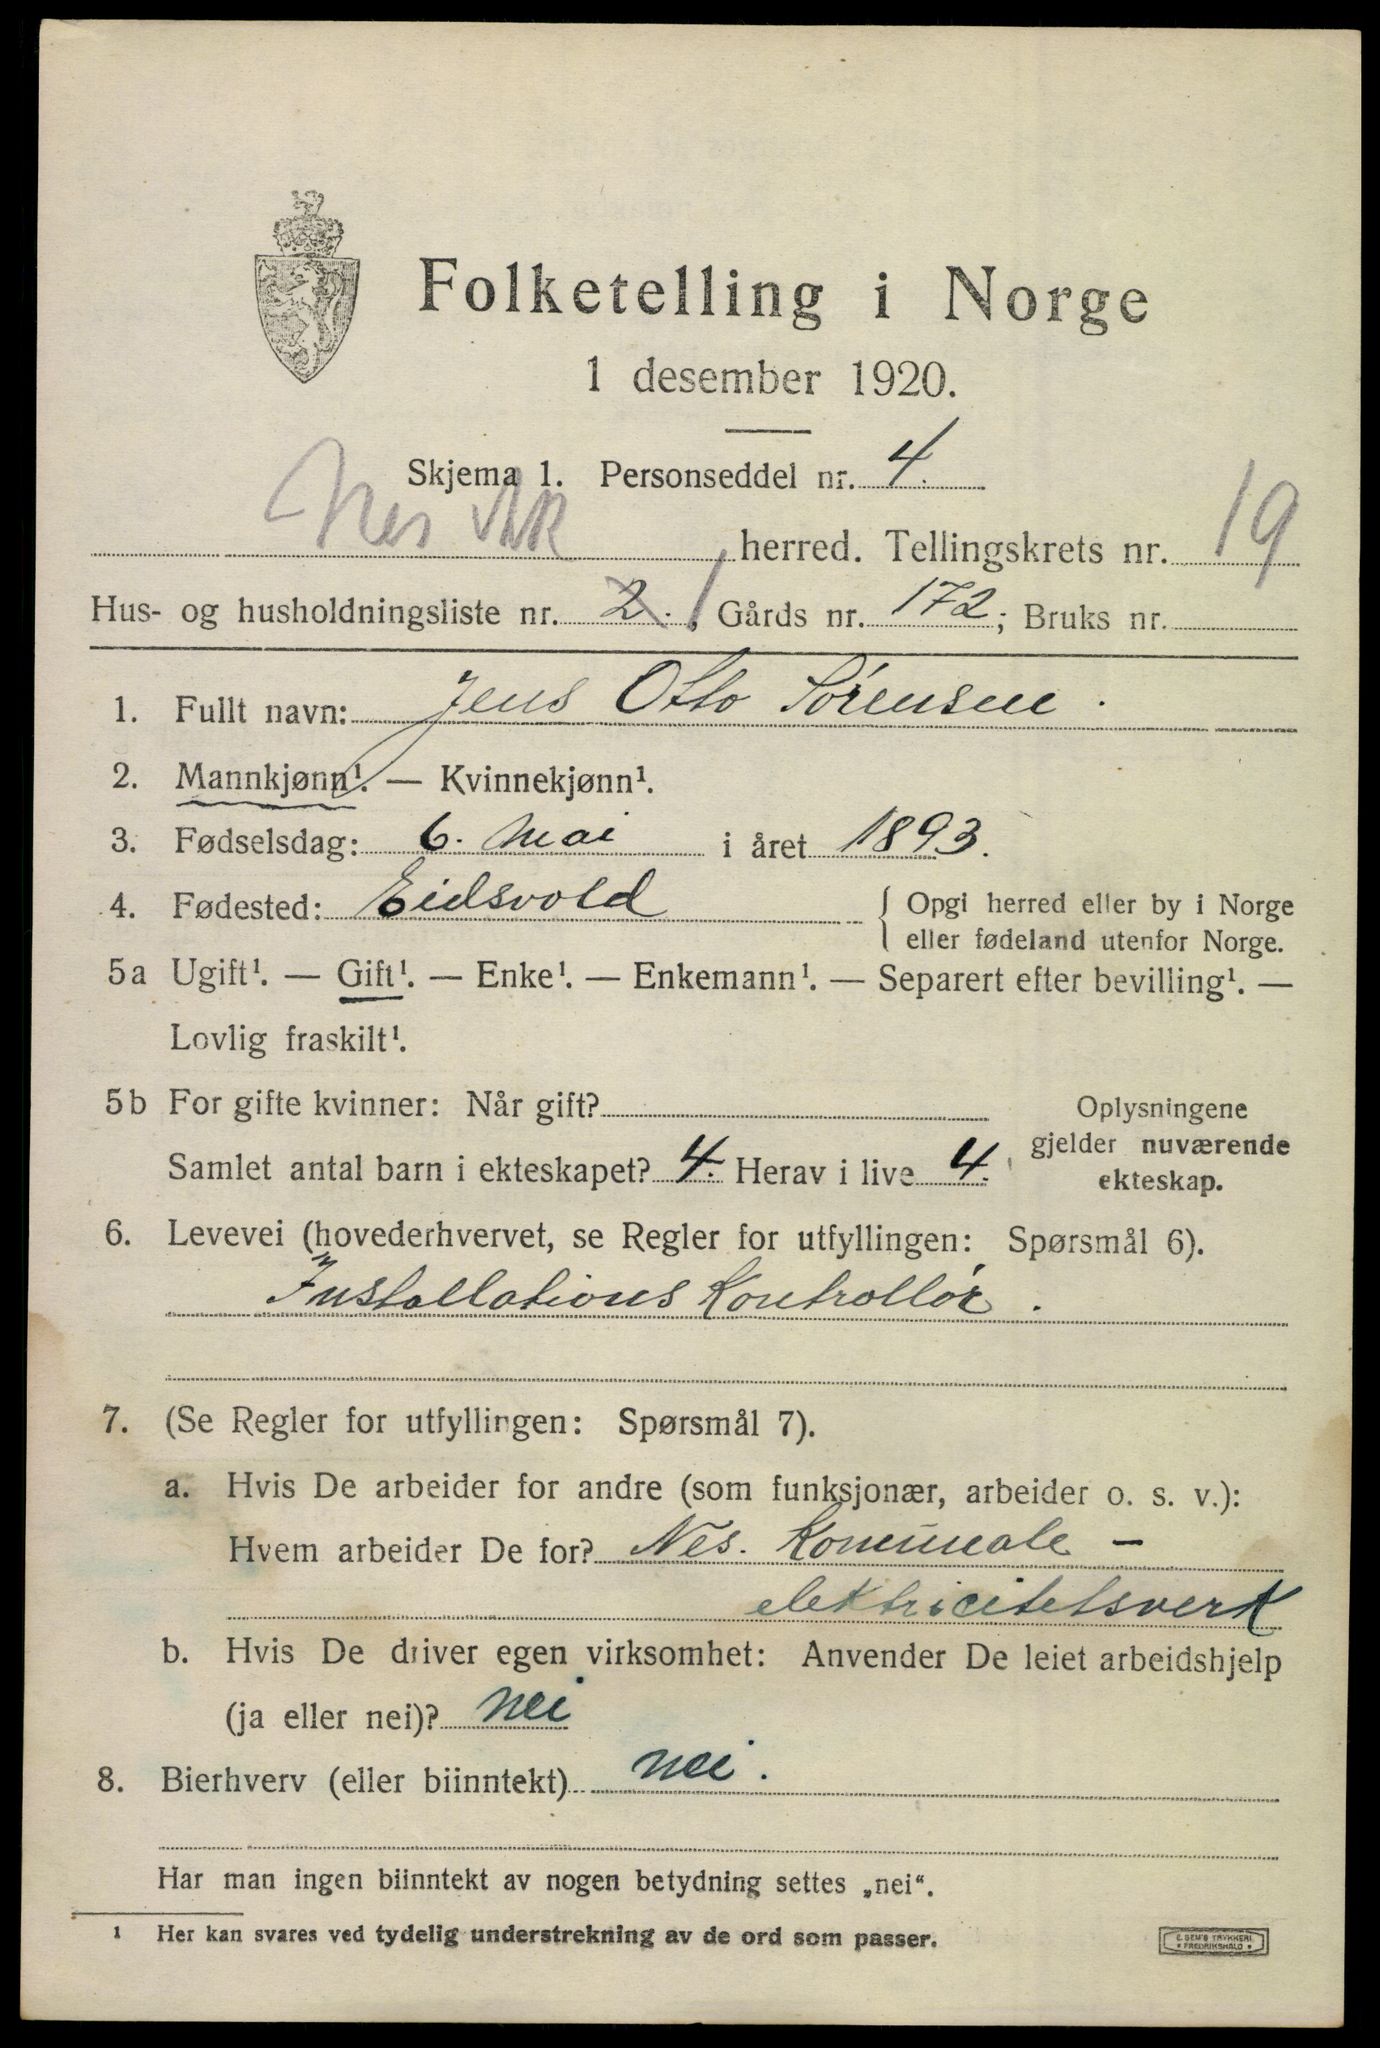 Folketelling i Norge
1 desember 1920.
Skjema 1. Personseddel nr. 4.
Nes Ak herred. Tellingskrets nr. 19
Hus- og husholdningsliste nr. 2. 1; Gårds nr. 172; Bruks nr.
1. Fullt navn: Jens Otto Sörensen.
2. Mannkjønn¹. — Kvinnekjønn¹.
3. Fødselsdag: 6. Mai i året 1893.
4. Fødested: Eidsvold { Opgi herred eller by i Norge
eller fødeland utenfor Norge.
5a Ugift¹. — Gift¹. — Enke¹. — Enkemann¹. — Separert efter bevilling¹. —
Lovlig fraskilt¹.
5b For gifte kvinner: Når gift? Oplysningene
gjelder nuværende
Samlet antal barn i ekteskapet? 4. Herav i live 4. ekteskap.
6. Levevei (hovederhvervet, se Regler for utfyllingen: Spørsmål 6).
Installations Kontrollör.
7. (Se Regler for utfyllingen: Spørsmål 7).
a. Hvis De arbeider for andre (som funksjonær, arbeider o. s. v.):
Hvem arbeider De for? Nes. Komunale –
elektricitetsverk
b. Hvis De driver egen virksomhet: Anvender De leiet arbeidshjelp
(ja eller nei)? nei
8. Bierhverv (eller biinntekt) nei.
Har man ingen biinntekt av nogen betydning settes „nei“.
¹ Her kan svares ved tydelig understrekning av de ord som passer.
E. SEM'S TRYKKERI
• FREDRIKSHALD •